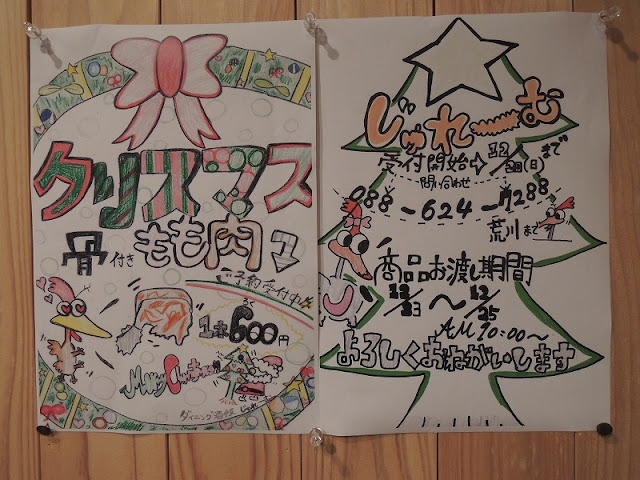 クリスマス
骨付きもも肉
ご予約受付中!!
1本600円
Merry Christmas
じゅれーむ
受付開始→12/20(日)まで
問い合わせ
088-624-7288
荒川まで
商品お渡し期間
12/23〜12/25
AM10:00〜
よろしくおねがいします